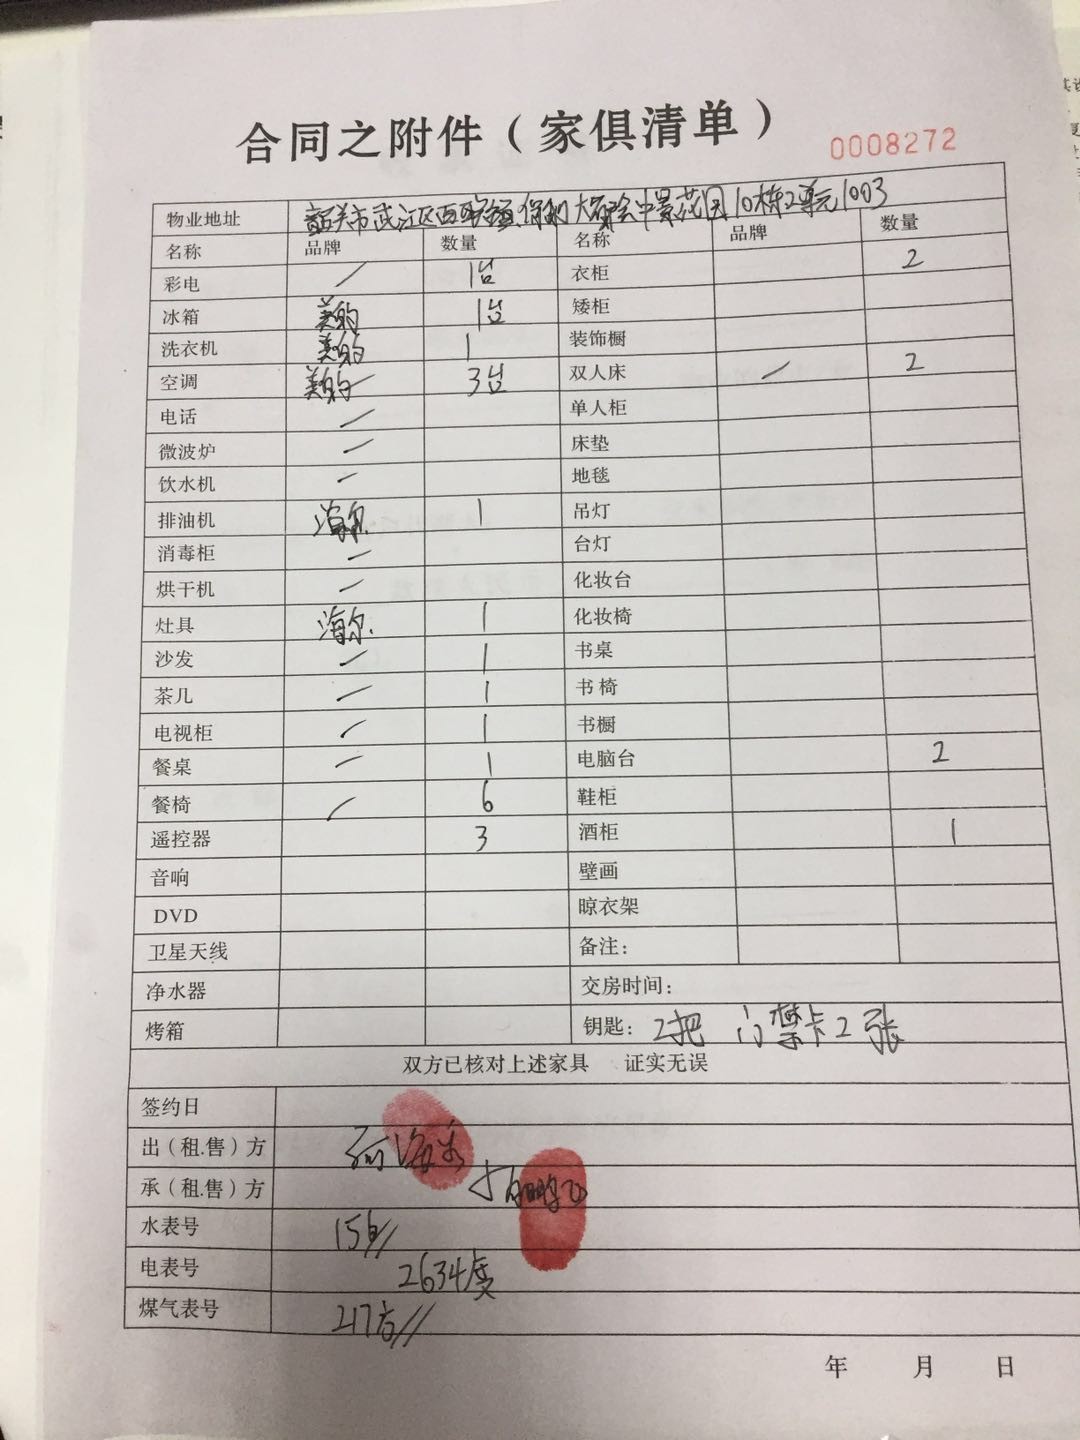 合同之附件（家俱清单）
0008272
物业地址 韶关市武江区西联镇保利大都会中景花园10栋2单元1003
名称 品牌 数量 名称 品牌 数量
彩电 / 1台 衣柜 2
冰箱 美的 1台 矮柜
洗衣机 美的 1 装饰橱
空调 美的 3台 双人床 / 2
电话 / 单人柜
微波炉 / 床垫
饮水机 / 地毯
排油机 海尔 1 吊灯
消毒柜 / 台灯
烘干机 / 化妆台
灶具 海尔 1 化妆椅
沙发 / 1 书桌
茶几 / 1 书椅
电视柜 / 1 书橱
餐桌 / 1 电脑台 2
餐椅 / 6 鞋柜
遥控器 3 酒柜 1
音响 壁画
DVD 晾衣架
卫星天线 备注：
净水器 交房时间：
烤箱 钥匙：2把 门禁卡2张
双方已核对上述家具 证实无误
签约日
出（租.售）方
承（租.售）方
水表号
电表号 2634度
煤气表号 217方//
年 月 日